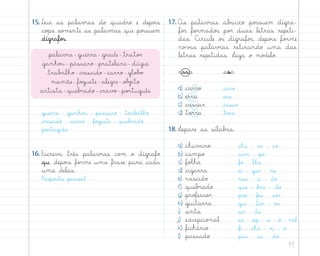 15. Leia as palavras do quadro e depois
copie somente as palavras que possuem
dígrafos.
palavra - guerra - grade - trator
ganhou - pássaro - prateleira - digno
trabalho - crescido - carro - globo
mamãe - foguete - alegre - objeto
artista - quebrado - cravo - português
guerra - ganhou - pássaro - trabalho
crescido - carro - foguete - quebrado
português
16. Escreva três palavras com o dígrafo
qu, depois forme uma frase para cada
uma delas.
Resposta pessoal
17. As palavras abaixo possuem dígra-
fos formados por duas letras repeti-
das. Circule os dígrafos, depois forme
novas palavras retirando uma das
letras repetidas. Siga o modelo.
assa asa
a) carro caro
b) erra era
c) cassar casar
d) torra tora
18. Separe as sílabas.
a) chuveiro chu - vei - ro
b) campo cam - po
c) folha fo - lha
d) cigarra ci - gar - ra
e) nascido nas - ci - do
f) quebrado que - bra - do
g) professor pro - fes - sor
h) guitarra gui - tar - ra
i) anta an - ta
j) excepcional ex - cep - ci - o - nal
k) fichário fi - chá - ri - o
l) passado pas - sa - do